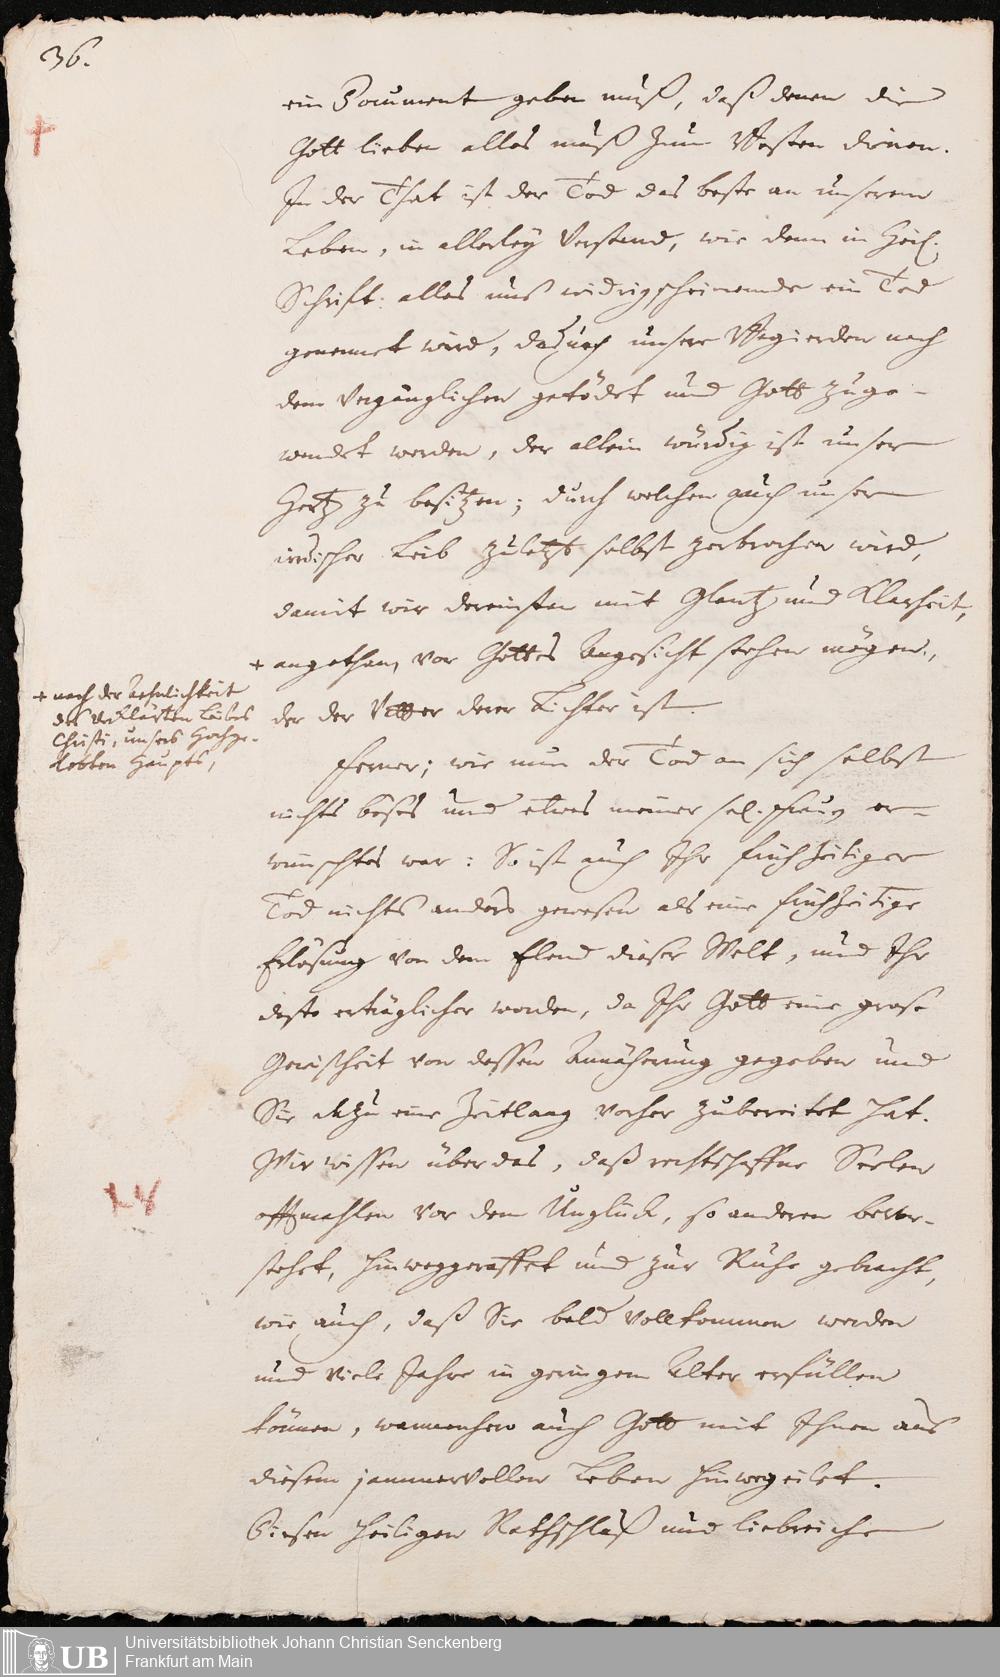 36.
ein Document geben muß, daß denen die
Gott lieben alles muß zum Besten dienen.
In der That ist der Tod das beste an unserem
Leben, in allerley Verstand, wie denn in Heil.
Schrifft alles uns widrigscheinende ein Tod
genennet wird, dadurch unsere Begierden nach
dem Vergänglichen getödet und Gott zuge-
wendet werden, der allein würdig ist unser
Hertz zu besitzen; durch welchen auch unser
irrdischer Leib zuletzt selbst zerbrochen wird,
damit wir dereinsten mit Glantz und Klarheit,
+ angethan, vor Gottes Angesicht stehen mögen,
+ nach der Aehnlichkeit
des verklärten Leibes
Christi, unsers Hochge-
liebten Haupts,
der der Vatter derer Lichter ist.
Ferner; wie nun der Tod an sich selbst
nichts böses und etwas meiner sel. Frauen er-
wünschtes war: So ist auch Ihr frühzeitiger
Tod nichts anders gewesen als eine frühzeitige
Erlösung von dem Elend dieser Welt, und Ihr
desto erträglicher worden, da Ihr Gott eine grose
Gewisheit von dessen Annäherung gegeben und
Sie dazu eine Zeitlang vorher zubereitet hat.
Wir wissen über das, daß rechtschaffne Seelen
offtmahlen vor dem Unglück, so anderen bevor-
stehet, hinweggeraffet und zur Ruhe gebracht,
wie auch, daß Sie bald vollkommen werden
und viele Jahre in geringem Alter erfüllen
können, wannenhero auch Gott mit Ihnen aus
diesem jammervollen Leben hinwegeilet.
Diesen heiligen Rathschluß und liebreiche
UB
Universitätsbibliothek Johann Christian Senckenberg
Frankfurt am Main